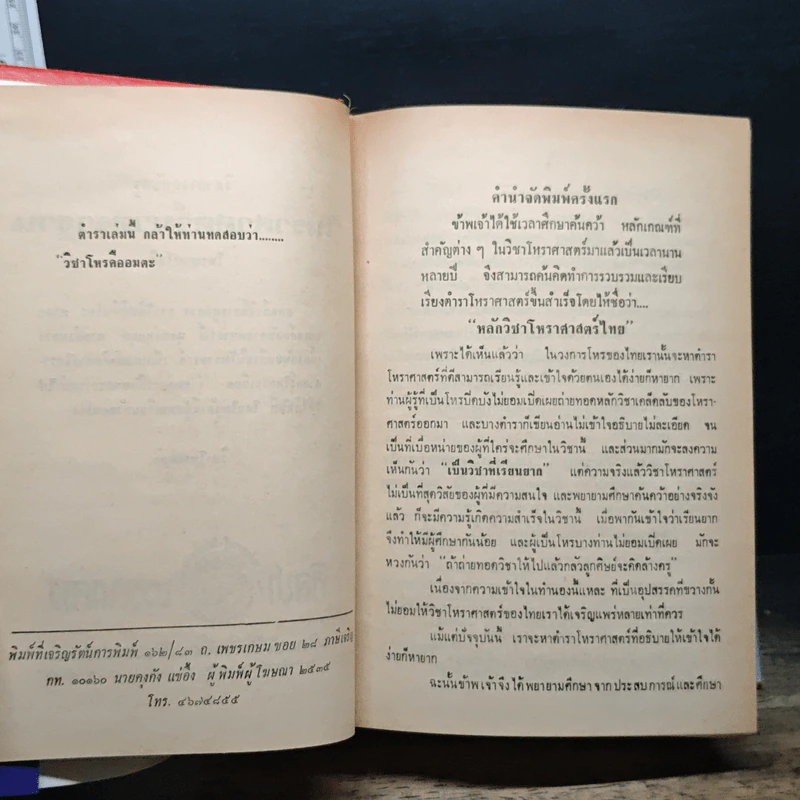 ตำราเล่มนี้ กล้าให้ท่านทดสอบว่า........
“วิชาโหรคืออมตะ”
พิมพ์ที่เจริญรัตน์การพิมพ์ ๑๖๒/๘๓ ถ. เพชรเกษม ซอย ๒๘ ภาษีเจริญ
กท. ๑๐๑๖๐ นายคุงกัง แซ่อึ้ง ผู้พิมพ์ผู้โฆษณา ๒๕๓๕
โทร. ๔๖๗๔๘๕๕
คำนำจัดพิมพ์ครั้งแรก
ข้าพเจ้าได้ใช้เวลาศึกษาค้นคว้า หลักเกณฑ์ที่
สำคัญต่าง ๆ ในวิชาโหราศาสตร์มาแล้วเป็นเวลานาน
หลายปี จึงสามารถค้นคิดทำการรวบรวมและเรียบ
เรียงตำราโหราศาสตร์ขึ้นสำเร็จโดยให้ชื่อว่า....
“หลักวิชาโหราศาสตร์ไทย”
เพราะได้เห็นแล้วว่า ในวงการโหรของไทยเรานั้นจะหาตำรา
โหราศาสตร์ที่ดีสามารถเรียนรู้และเข้าใจด้วยตนเองได้ง่ายก็หายาก เพราะ
ท่านผู้รู้ที่เป็นโหรปิดบังไม่ยอมเปิดเผยถ่ายทอดหลักวิชาเคล็ดลับของโหรา-
ศาสตร์ออกมา และบางตำราก็เขียนอ่านไม่เข้าใจอธิบายไม่ละเอียด จน
เป็นที่เบื่อหน่ายของผู้ที่ใคร่จะศึกษาในวิชานี้ และส่วนมากมักจะลงความ
เห็นกันว่า “เป็นวิชาที่เรียนยาก” แต่ความจริงแล้ววิชาโหราศาสตร์
ไม่เป็นที่สุดวิสัยของผู้ที่มีความสนใจ และพยายามศึกษาค้นคว้าอย่างจริงจัง
แล้ว ก็จะมีความรู้เกิดความสำเร็จในวิชานี้ เมื่อพากันเข้าใจว่าเรียนยาก
จึงทำให้มีผู้ศึกษากันน้อย และผู้เป็นโหรบางท่านไม่ยอมเปิดเผย มักจะ
หวงกันว่า “ถ้าถ่ายทอดวิชาให้ไปแล้วกลัวลูกศิษย์จะคิดล้างครู”
เนื่องจากความเข้าใจในทำนองนี้แหละ ที่เป็นอุปสรรคที่ขวางกั้น
ไม่ยอมให้วิชาโหราศาสตร์ของไทยเราได้เจริญแพร่หลายเท่าที่ควร
แม้แต่ปัจจุบันนี้ เราจะหาตำราโหราศาสตร์ที่อธิบายให้เข้าใจได้
ง่ายก็หายาก
ฉะนั้นข้าพเจ้าจึงได้พยายามศึกษาจากประสบการณ์และศึกษา